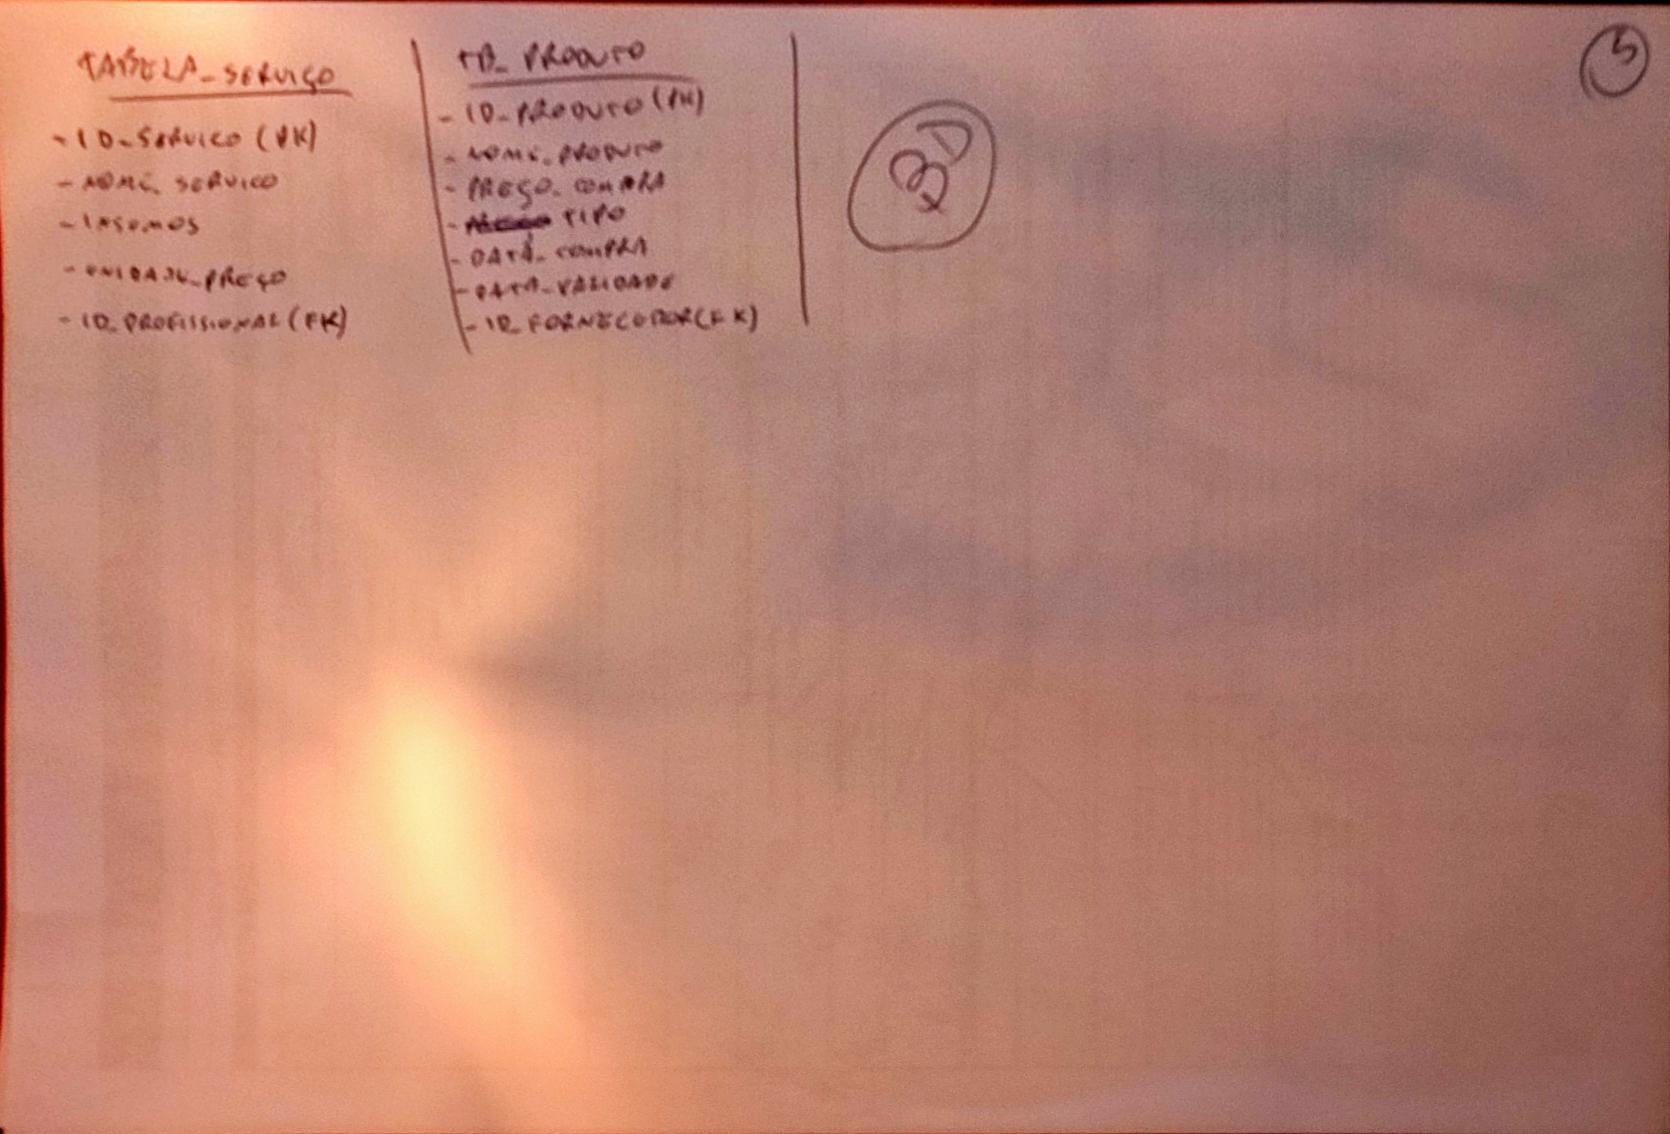 TABELA_SERVIÇO
- ID_SERVICO (PK)
- NOME_SERVICO
- INSUMOS
- UNIDADE_PREÇO
- ID_PROFISSIONAL (FK)
TB_PRODUTO
- ID_PRODUTO (PK)
- NOME_PRODUTO
- PREÇO_COMPRA
- TIPO
- DATA_COMPRA
- DATA_VALIDADE
- ID_FORNECEDOR (FK)
BD
5